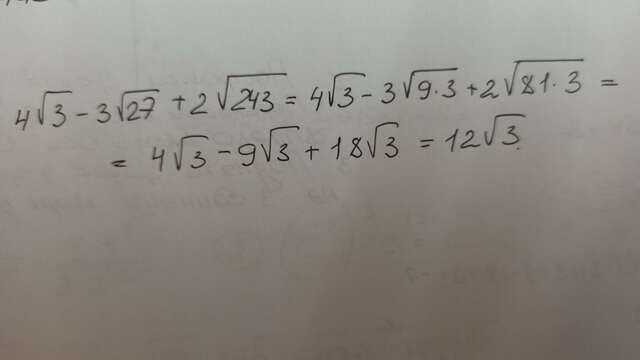 4√3 - 3√27 + 2√243 = 4√3 - 3√9·3 + 2√81·3 =
= 4√3 - 9√3 + 18√3 = 12√3.